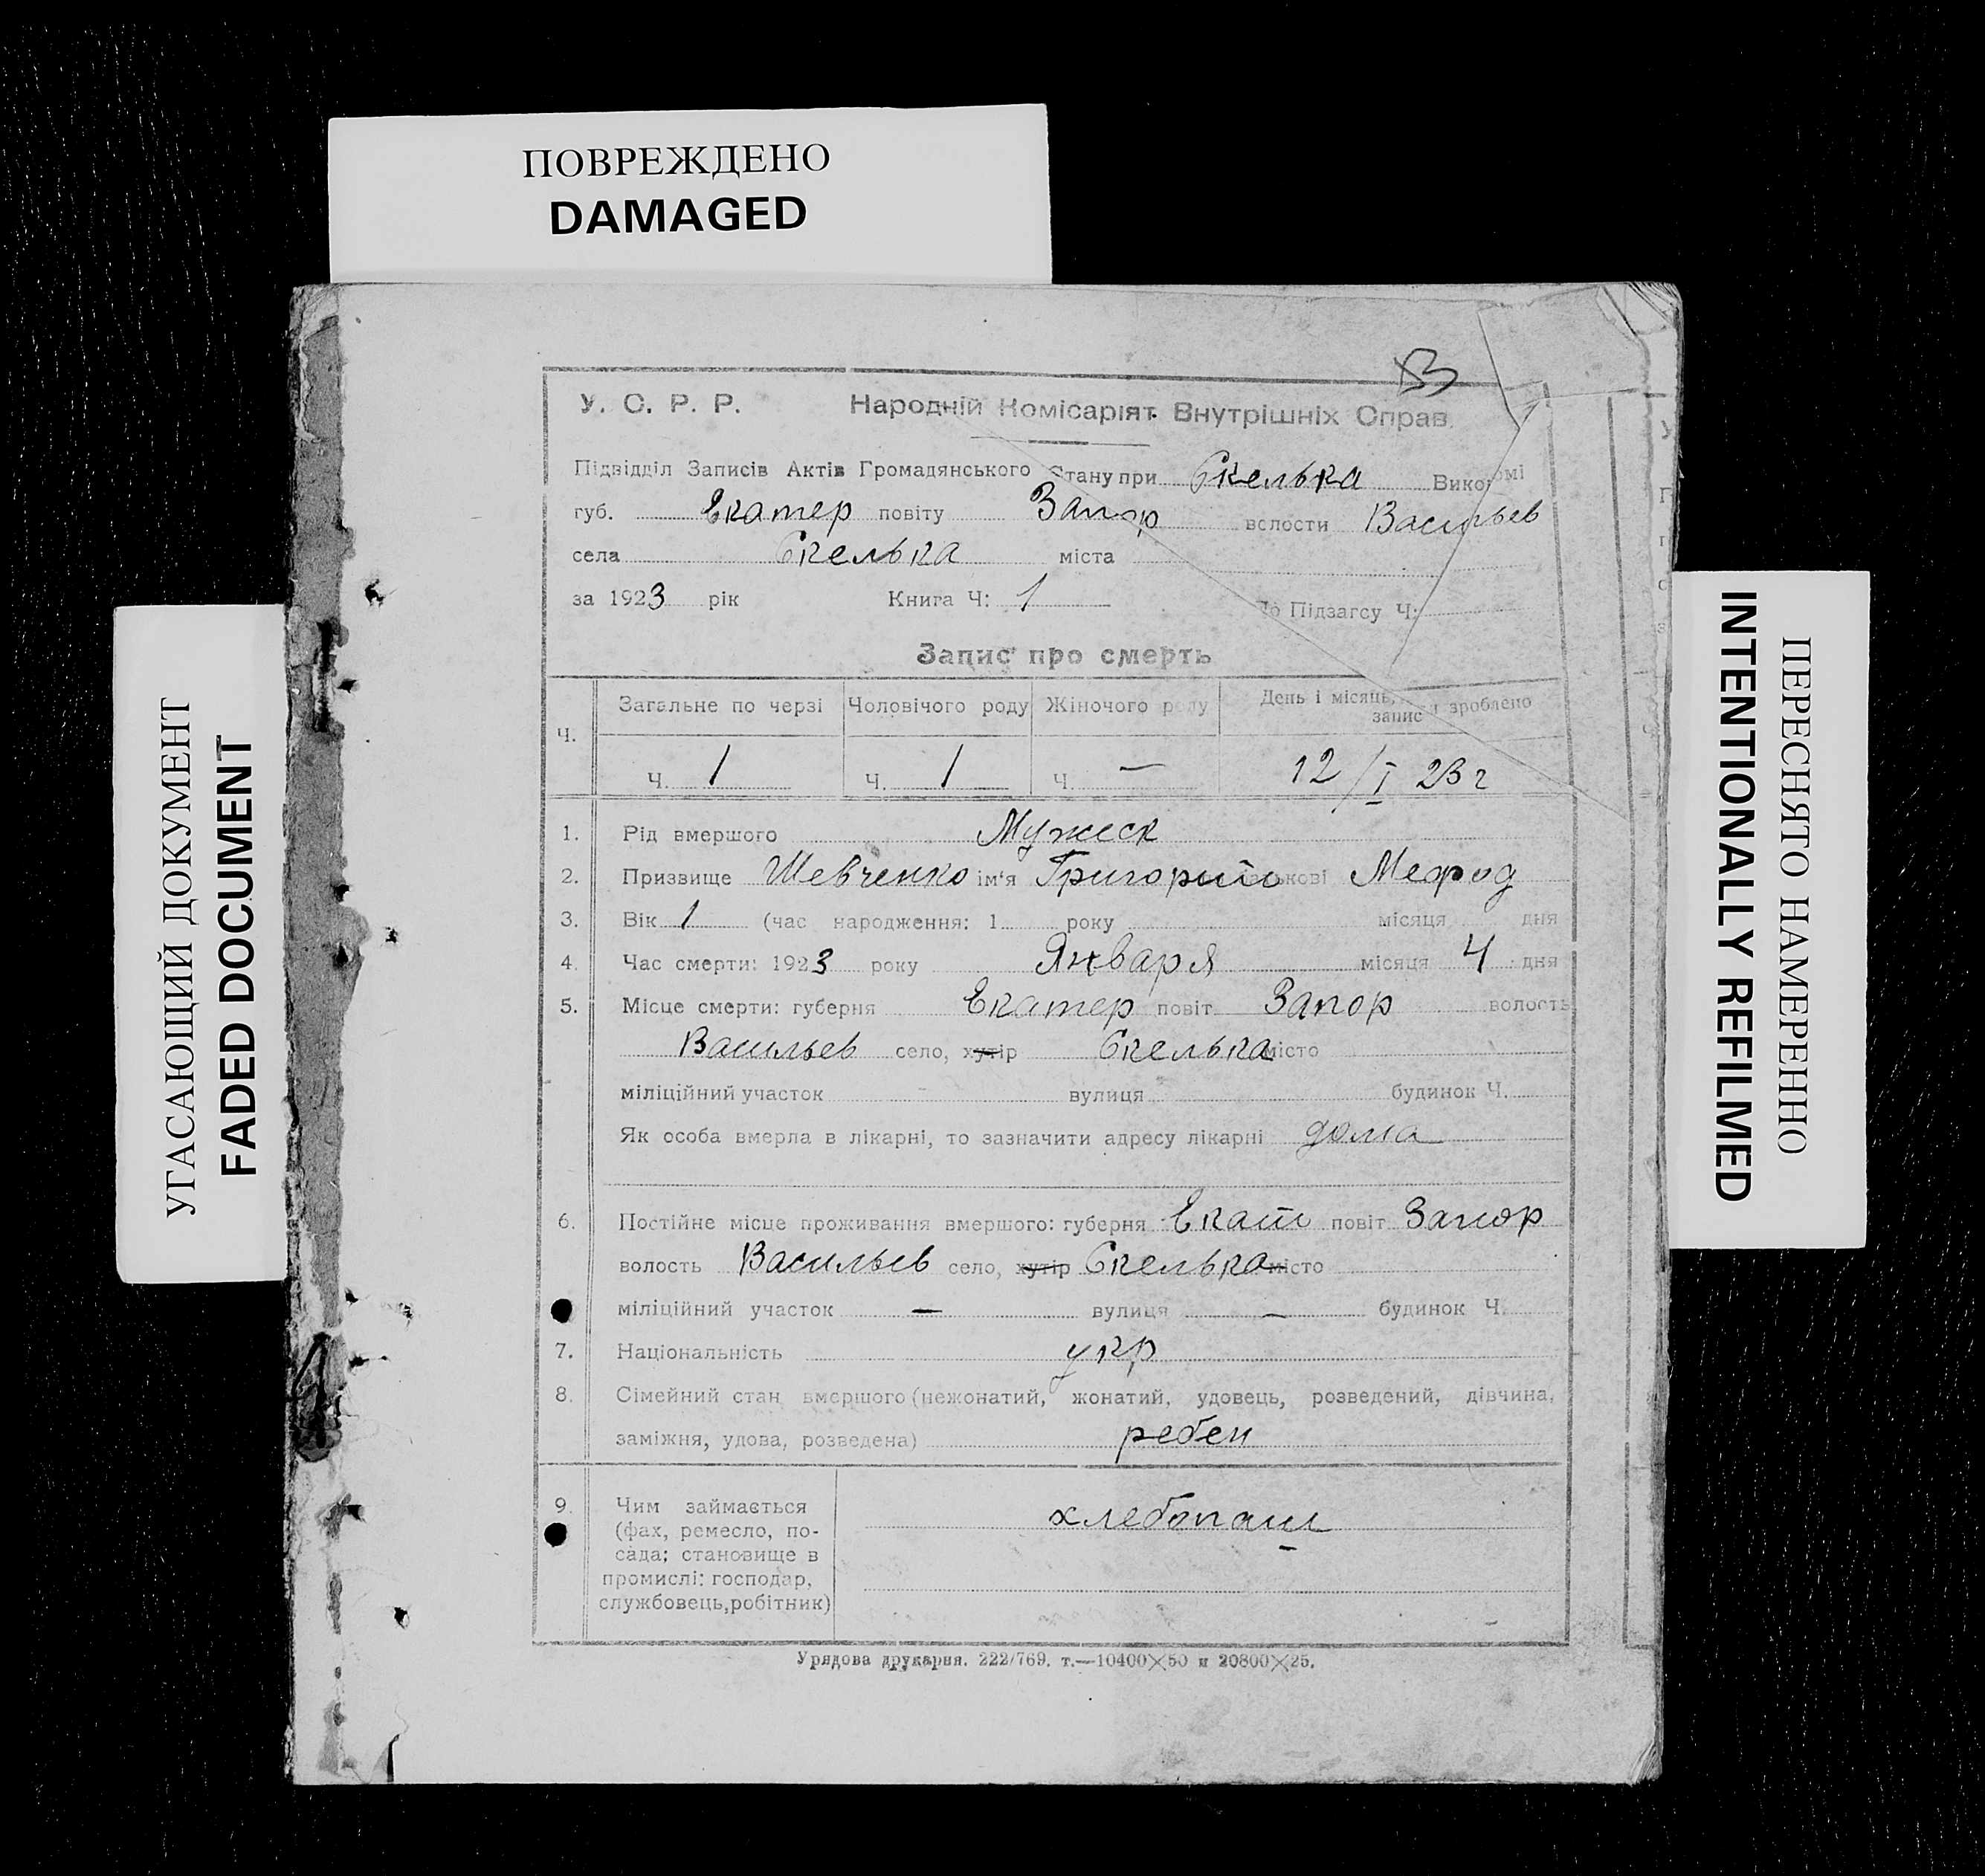 ПОВРЕЖДЕНО
DAMAGED
УГАСАЮЩИЙ ДОКУМЕНТ
FADED DOCUMENT
ПЕРЕСНЯТО НАМЕРЕННО
INTENTIONALLY REFILMED
У. С. Р. Р. Народній Комісаріят Внутрішніх Справ.
Підвідділ Записів Актів Громадянського Стану при Скелька Виком
губ. Екатер повіту Запор волости Васильев
села Скелька міста
за 1923 рік Книга Ч: 1 До Підзагсу Ч:
Запис про смерть
Ч. Загальне по черзі Чоловічого роду Жіночого роду День і місяць, зроблено
запис
Ч. 1 Ч. 1 Ч. — 12/I 23 г
1. Рід вмершого Мужеск
2. Призвище Шевченко ім'я Григорий по батькові Мефод
3. Вік 1 (час народження: 1 року місяця дня
4. Час смерти: 1923 року Января місяця 4 дня
5. Місце смерти: губерня Екатер повіт Запор волость
Васильев село, хутір Скелька місто
міліційний участок вулиця будинок Ч.
Як особа вмерла в лікарні, то зазначити адресу лікарні дома
6. Постійне місце проживання вмершого: губерня Екат повіт Запор
волость Васильев село, хутір Скелька місто
міліційний участок — вулиця — будинок Ч.
7. Національність укр
8. Сімейний стан вмершого (нежонатий, жонатий, удовець, розведений, дівчина,
заміжня, удова, розведена) ребен
9. Чим займається хлебопаш
(фах, ремесло, по-
сада; становище в
промислі: господар,
службовець, робітник)
Урядова друкарня. 222/769. т.—10400×50 и 20800×25.